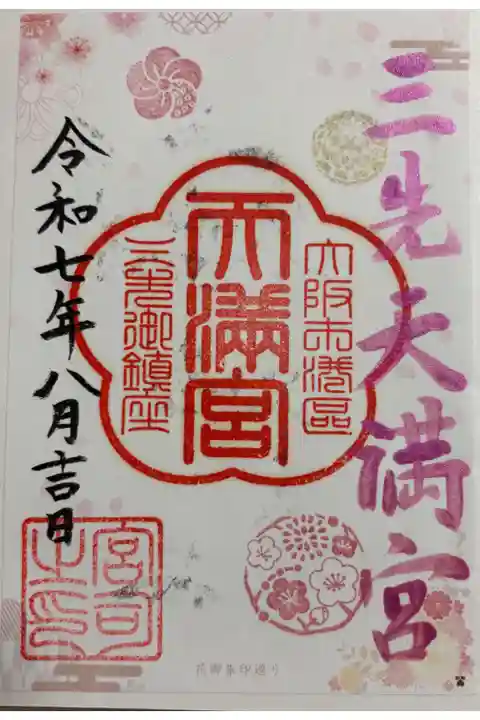 三先天満宮
大阪市港區
天満宮
三先御鎮座
令和七年八月吉日
宮司之印
花御朱印巡り